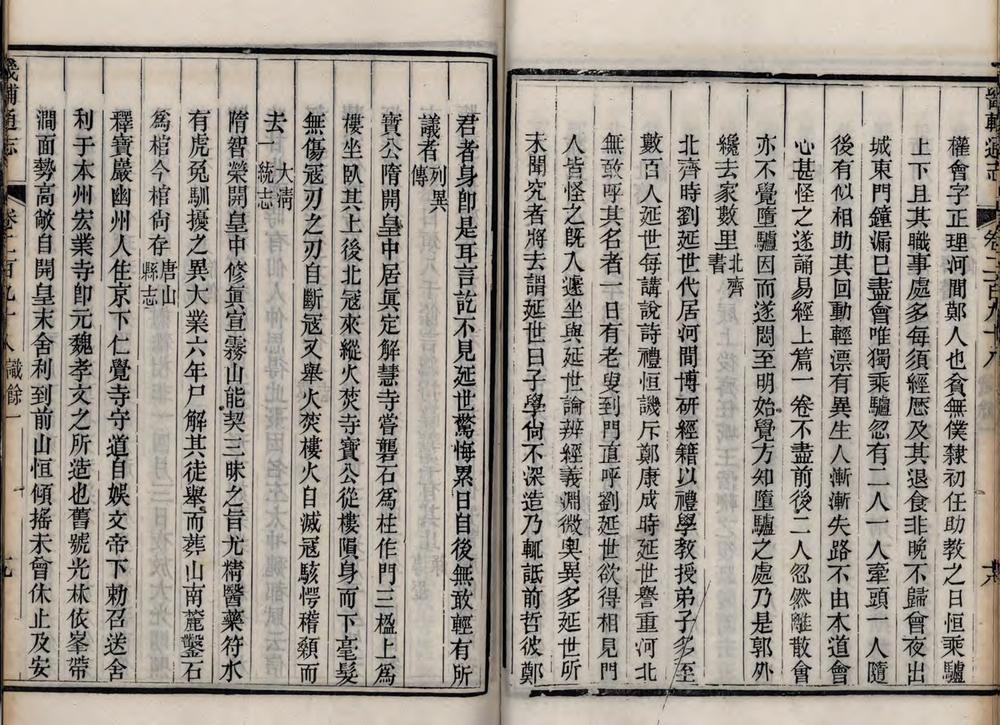 權會字正理河間鄭人也貧無僕隸初任助教之日恒乘驢
上下且其職事處多每須經歷及其退食非晚不歸會夜出
城東門鐘漏已盡會唯獨乘驢忽有二人一人牽頭一人隨
後有似相助其回動輕漂有異生人漸漸失路不由本道會
心甚怪之遂誦易經上篇一卷不盡前後二人忽然離散會
亦不覺墮驢因而遂悶至明始覺方知墮驢之處乃是郭外
纔去家數里北齊書
北齊時劉延世代居河間博研經籍以禮學教授弟子多至
數百人延世每講說詩禮恒譏斥鄭康成時延世譽重河北
無敢呼其名者一日有老叟到門直呼劉延世欲得相見門
人皆怪之既入遽坐與延世論辨經義淵微奧異多延世所
未聞究者將去謂延世曰子學尙不深造乃輒詆前哲彼鄭
畿輔通志 卷二百九十八 識餘一
君者身卽是耳言訖不見延世驚悔累日自後無敢輕有所
議者列異傳
寶公隋開皇中居眞定解慧寺嘗礱石爲柱作門三楹上爲
樓坐臥其上後北寇來縱火焚寺寶公從樓隕身而下毫髮
無傷寇刃之刃自斷寇又舉火焚樓火自滅寇駭愕稽顙而
去大淸一統志
隋智榮開皇中修眞宣霧山能契三昧之旨尤精醫藥符水
有虎兔馴擾之異大業六年尸解其徒舉而葬山南麓鑿石
爲棺今棺尙存唐山縣志
釋寶巖幽州人住京下仁覺寺守道自娛文帝下勅召送舍
利于本州宏業寺卽元魏孝文之所造也舊號光林依峯帶
澗面勢高敞自開皇末舍利到前山恒傾搖未曾休止及安